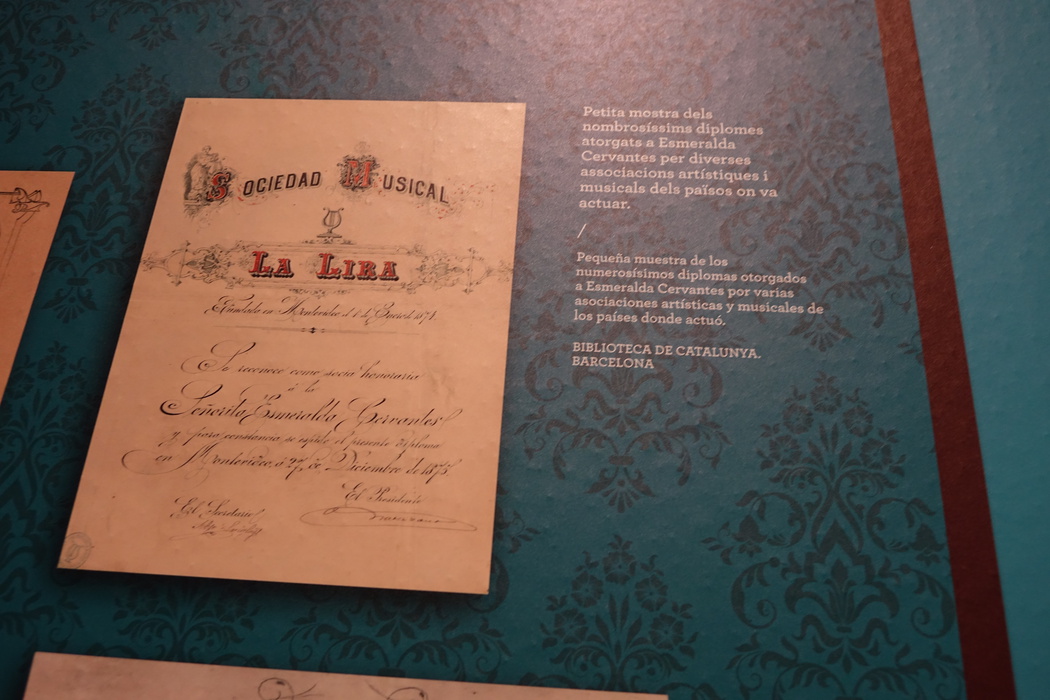 SOCIEDAD MUSICAL
LA LIRA
Fundada en Montevideo el 6 de Enero de 1873.
Se reconoce como socia honoraria
á la
Señorita Esmeralda Cervantes
y para constancia se espide el presente diploma
en Montevideo á 27 de Diciembre de 1875
El Presidente
El Secretario
Petita mostra dels
nombrosíssims diplomes
atorgats a Esmeralda
Cervantes per diverses
associacions artístiques i
musicals dels països on va
actuar.
/
Pequeña muestra de los
numerosísimos diplomas otorgados
a Esmeralda Cervantes por varias
asociaciones artísticas y musicales de
los países donde actuó.
BIBLIOTECA DE CATALUNYA.
BARCELONA